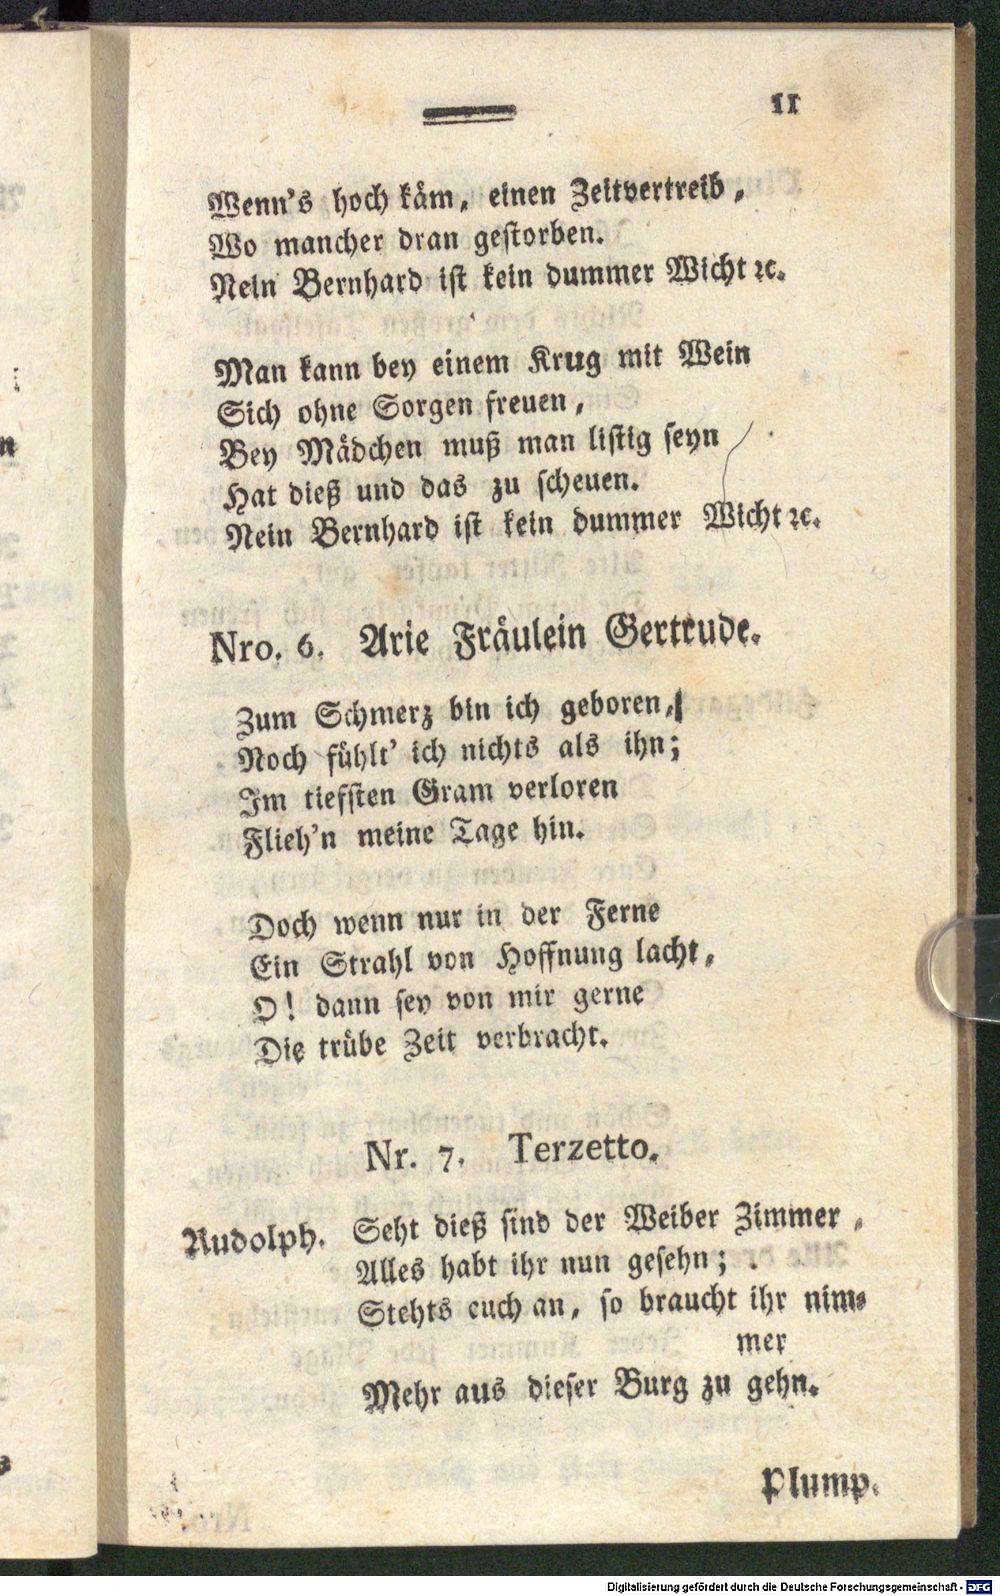 11
Wenn's hoch käm, einen Zeitvertreib,
Wo mancher dran gestorben.
Nein Bernhard ist kein dummer Wicht ꝛc.
Man kann bey einem Krug mit Wein
Sich ohne Sorgen freuen,
Bey Mädchen muß man listig seyn
Hat dieß und das zu scheuen.
Nein Bernhard ist kein dummer Wicht ꝛc.
Nro. 6. Arie Fräulein Gertrude.
Zum Schmerz bin ich geboren,
Noch fühlt' ich nichts als ihn;
Im tiefsten Gram verloren
Flieh'n meine Tage hin.
Doch wenn nur in der Ferne
Ein Strahl von Hoffnung lacht,
O! dann sey von mir gerne
Die trübe Zeit verbracht.
Nr. 7. Terzetto.
Rudolph. Seht dieß sind der Weiber Zimmer,
Alles habt ihr nun gesehn;
Stehts euch an, so braucht ihr nim-
mer
Mehr aus dieser Burg zu gehn.
Plump.
Digitalisierung gefördert durch die Deutsche Forschungsgemeinschaft - DFG